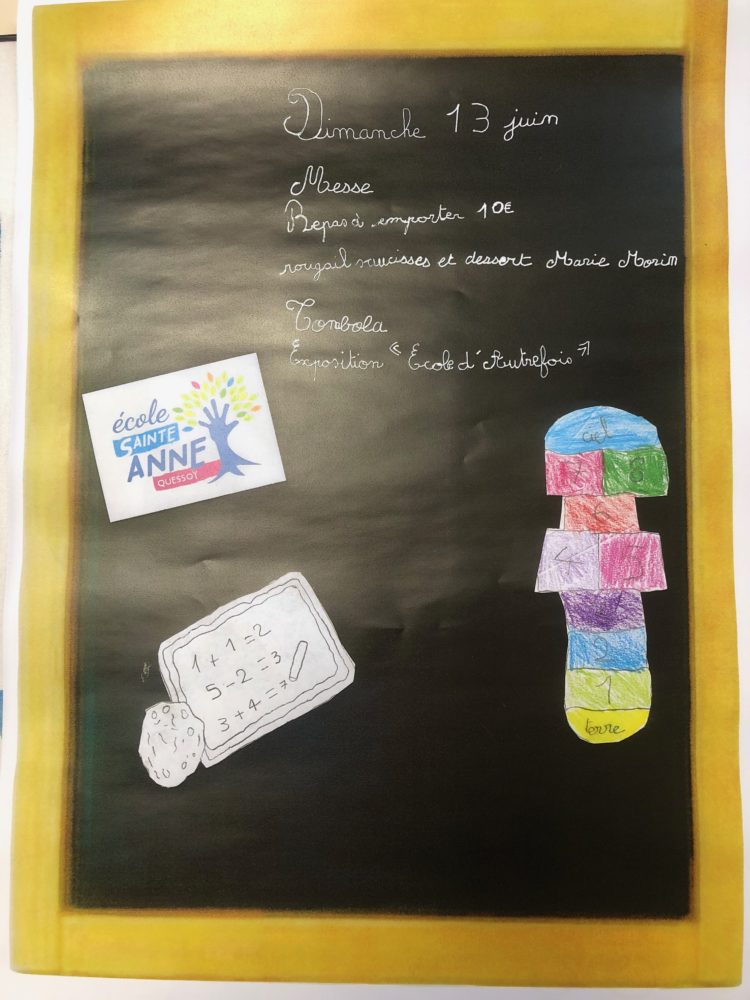 Dimanche 13 juin
Messe
Repas à emporter 10€
rougail saucisses et dessert Marie Morin
Tombola
Exposition « Ecole d'Autrefois »
école
SAINTE
ANNE
QUESSOY
ciel
7 8
6
4 5
3
2
1
terre
1 + 1 = 2
5 - 2 = 3
3 + 4 = 7